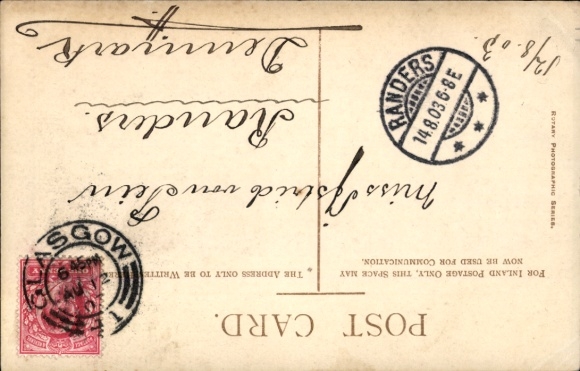 POST CARD.
FOR INLAND POSTAGE ONLY, THIS SPACE MAY
NOW BE USED FOR COMMUNICATION.
THE ADDRESS ONLY TO BE WRITTEN
ROTARY PHOTOGRAPHIC SERIES.
GLASGOW
AU 12
RANDERS
14.8.03 6-8 E
12/8.03
Miss Astrid von Stein
Randers.
Denmark